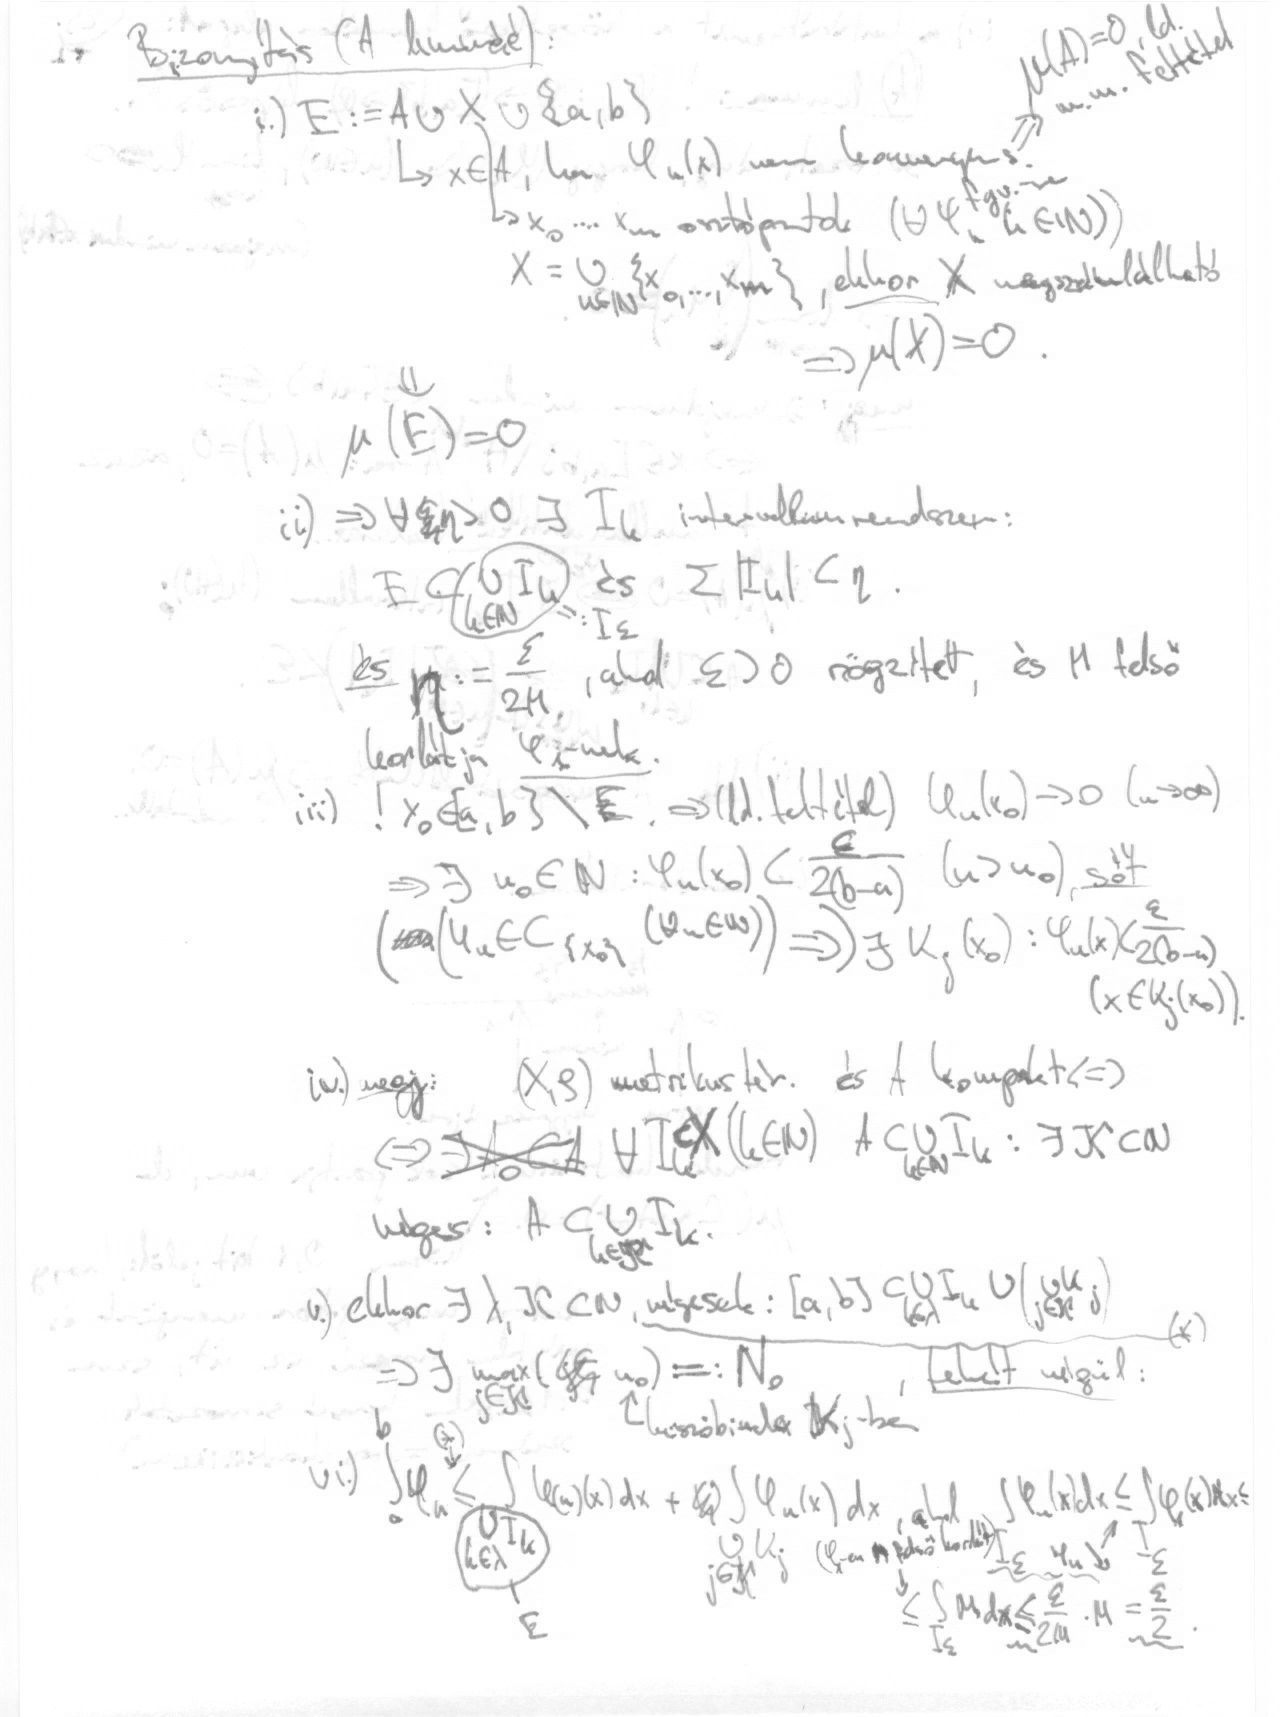 Bizonyítás (A lemmáé):
μ(A)=0, ld. m.m. feltétel
i.) E := A ∪ X ∪ {a,b}
↳ x∈A, ha φ_n(x) nem konvergens.
↳ x_0 ... x_m osztópontok (∀φ_n fgv.-re n∈ℕ)
X = ∪_{n∈ℕ} {x_0,...,x_m}, ekkor X megszámlálható
⇒ μ(X)=0.
⇓
μ(E)=0
ii) ⇒ ∀ η>0 ∃ I_k intervallumrendszer:
E ⊂ (∪_{k∈ℕ} I_k) és Σ|I_k| < η.
=: I_ε
és η := ε/2M, ahol ε>0 rögzített, és M felső
korlátja φ_1-nek.
iii) ! x_0∈[a,b] \ E. ⇒ (ld. feltétel) φ_n(x_0)→0 (n→∞)
⇒ ∃ n_0∈ℕ : φ_n(x_0) < ε/2(b-a) (n>n_0), sőt
((φ_n∈C{x_0} (∀n∈ℕ)) ⇒) ∃ K_j(x_0) : φ_n(x) < ε/2(b-a)
(x∈K_j(x_0)).
iv.) megj: (X,ϱ) metrikus tér. és A kompakt ⇔
⇔ ∀ I_k⊂X (k∈ℕ) A ⊂ ∪_{k∈ℕ} I_k : ∃ K ⊂ ℕ
véges : A ⊂ ∪_{k∈K} I_k.
v.) ekkor ∃ λ, K ⊂ ℕ, végesek : [a,b] ⊂ ∪_{k∈λ} I_k ∪ (∪_{j∈K} K_j)
(*)
⇒ ∃ max_{j∈K} (n_0) =: N_0, tehát végül:
↑ küszöbindex K_j-ben
vi.) ∫_a^b φ_n ≤ (*) ∫_{∪_{k∈λ} I_k} φ_n(x) dx + ∫_{∪_{j∈K} K_j} φ_n(x) dx, ahol ∫_{I_ε} φ_n(x) dx ≤ ∫_{I_ε} φ_1(x) dx ≤
(φ_1-en M felső korlát) φ_n ↘
≤ ∫_{I_ε} M dx ≤ ε/2M · M = ε/2.
E